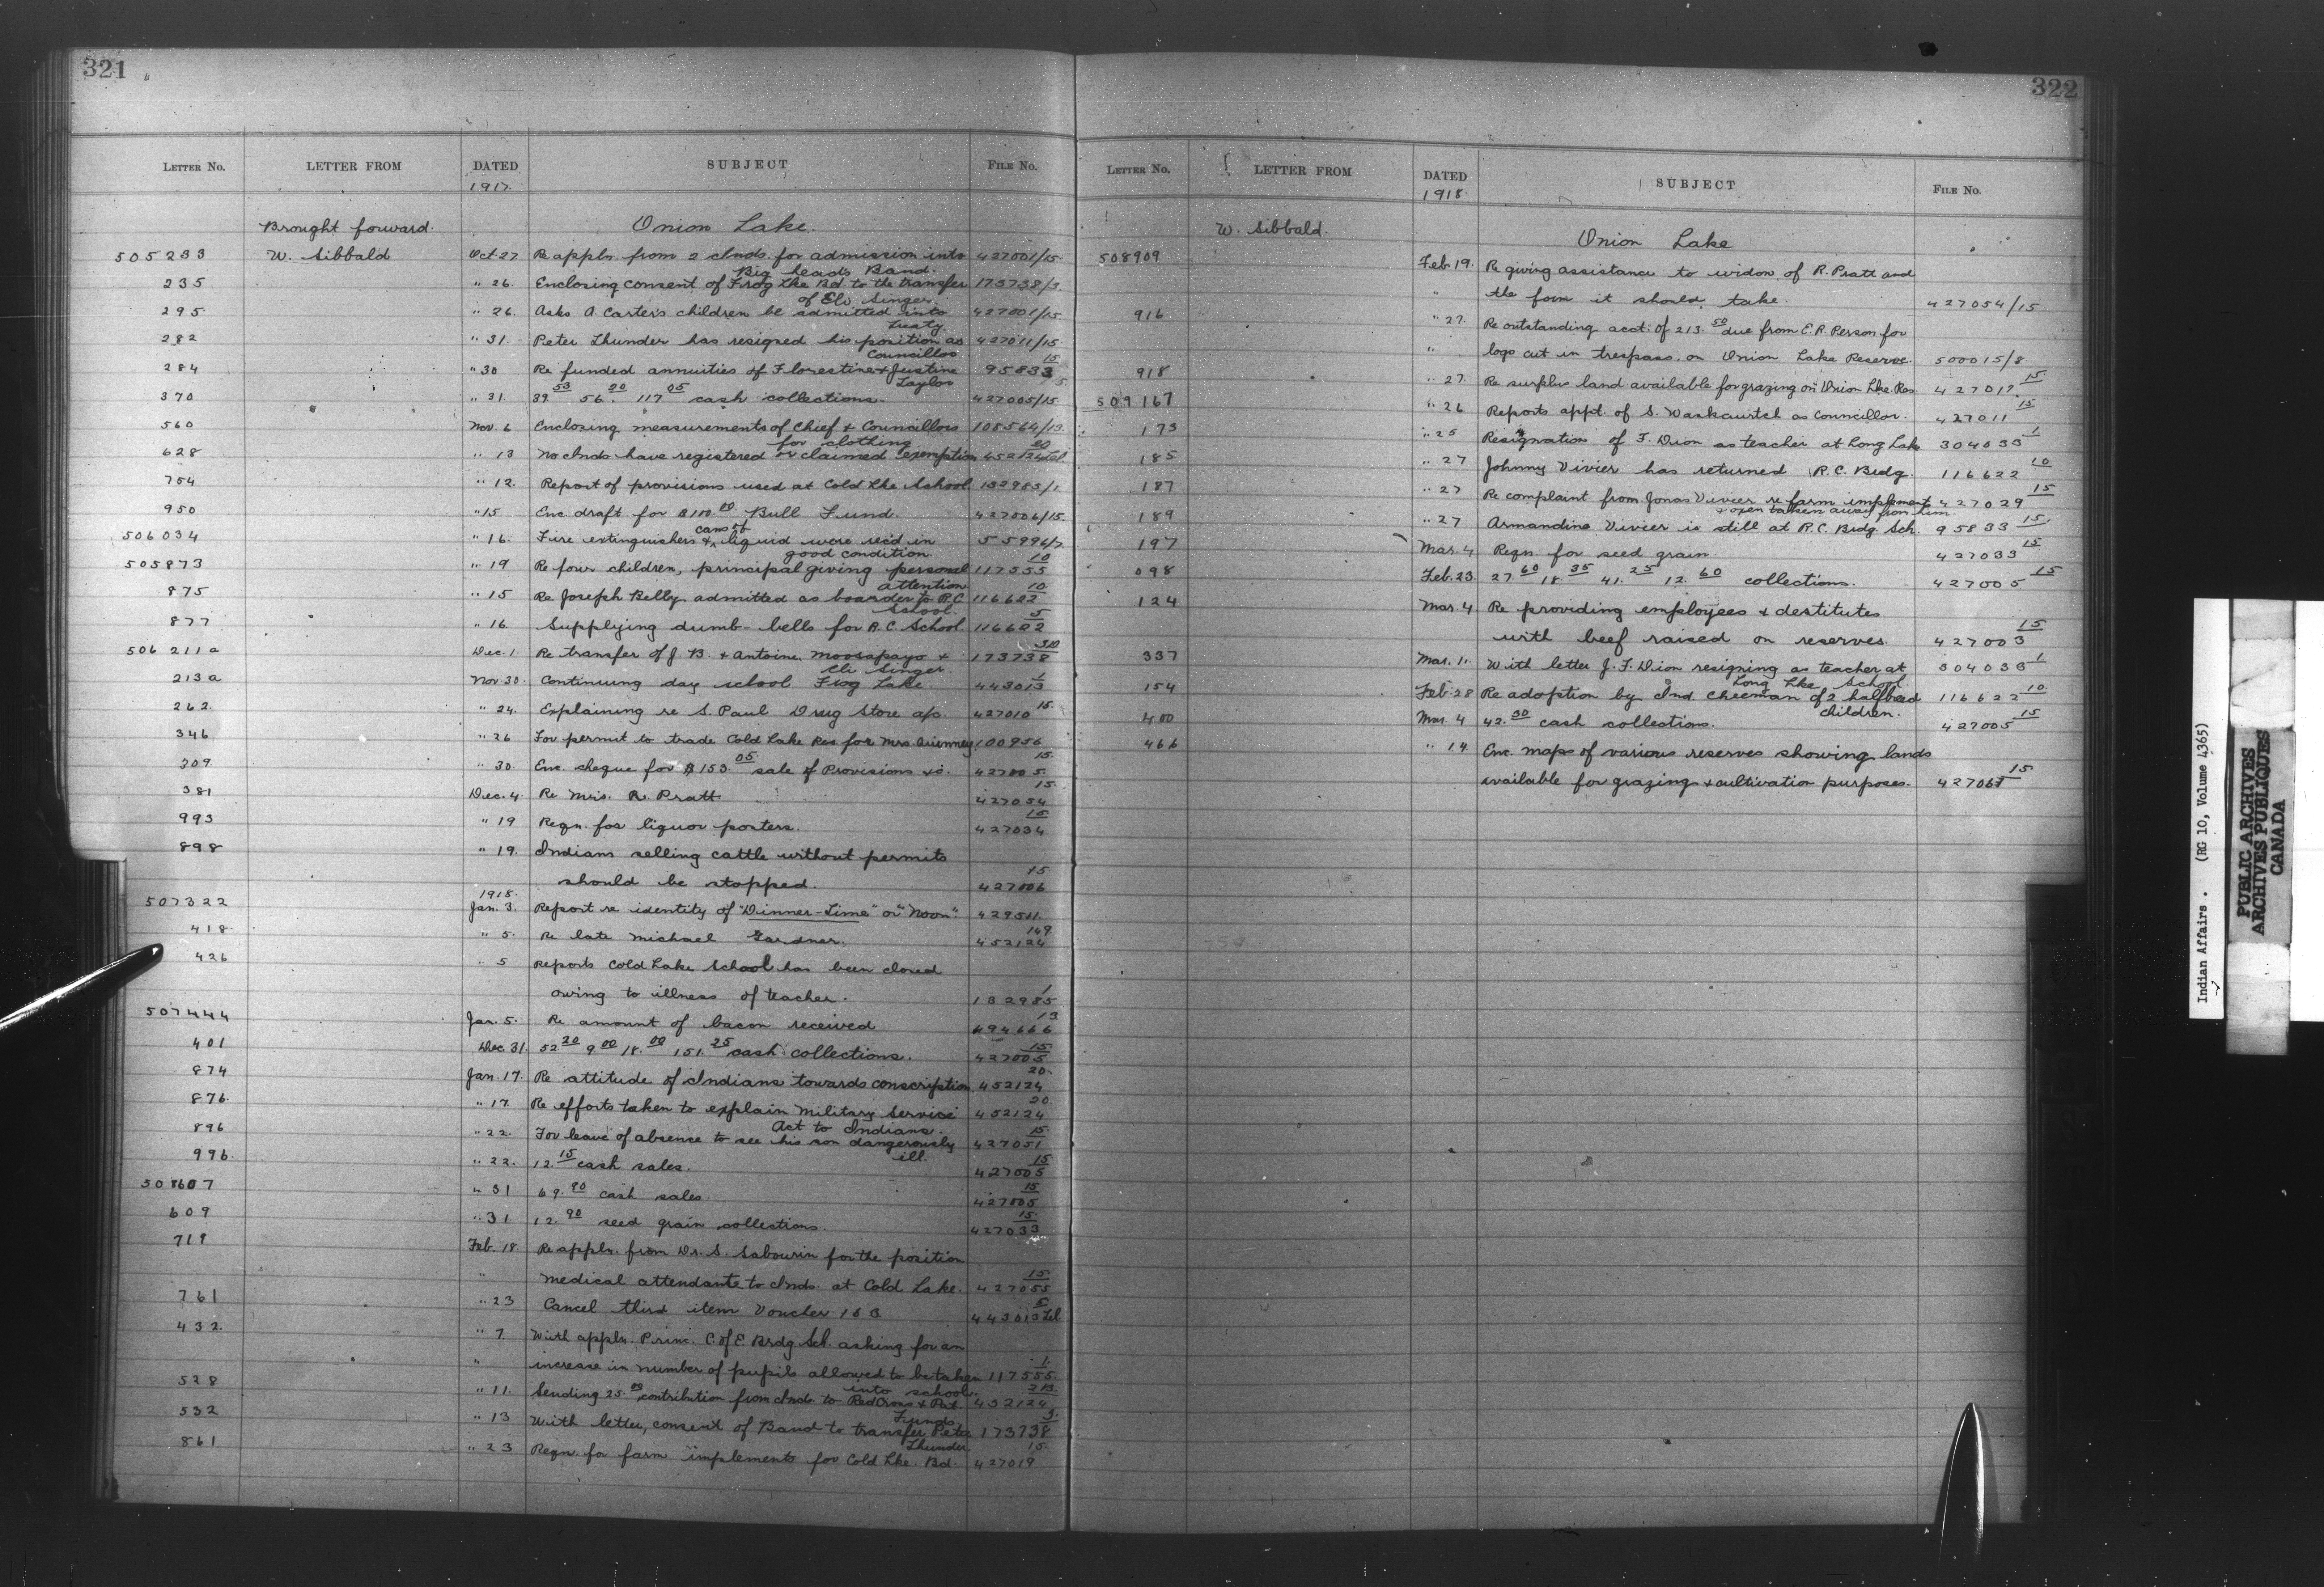 321
LETTER No. LETTER FROM DATED SUBJECT FILE No.
1917.
Brought forward. Onion Lake.
505233 W. Sibbald Oct. 27 Re appln. from 2 Inds. for admission into 427001/15
Big heads Band.
235 " 26. Enclosing consent of Frog Lke Bd. to the transfer 173738/3.
of Eli Singer.
295 " 26. Asks A. Carter's children be admitted into 427001/15.
treaty.
282 " 31. Peter Thunder has resigned his position as 427011/15.
Councillor
284 " 30 Re funded annuities of Florestine & Justine 95833 15
Taylor
370 " 31. 39.53 56.00 117.05 cash collections. 427005/15
560 Nov. 6 Enclosing measurements of Chief & Councillors 108564/13.
for clothing
628 " 13 No Inds have registered or claimed exemption 452124 20
754 " 12. Report of provisions used at Cold Lke School. 132985/1.
950 " 15 Enc draft for $100.00 Bull Fund. 427006/15.
506034 " 16. Fire extinguishers & cans of liquid were rec'd in 55996/7.
good condition.
505873 " 19 Re four children, principal giving personal 117555 10
attention
875 " 15 Re Joseph Belly admitted as boarder to R.C. 116622 10
School.
877 " 16. Supplying dumb-bells for R.C. School. 116622 5
506211a Dec. 1. Re transfer of J. B. & Antoine Moosapayo & 173738 310
Eli Singer.
213a Nov. 30. Continuing day school Frog Lake. 443013 1
262. " 24. Explaining re S. Paul Drug Store a/c. 427010 15.
346 " 26 For permit to trade Cold Lake Res for Mrs. Quinney 100956
309. " 30. Enc. cheque for $153.05 sale of Provisions &c. 427005 15.
381 Dec. 4 Re Mrs. R. Pratt. 427054 15
993 " 19 Reqn. for liquor posters. 427034 15
898 " 19. Indians selling cattle without permits
should be stopped. 427006 15
1918.
507322 Jan. 3. Report re identity of "Dinner-Time" or "Noon". 429511.
418. " 5. Re late Michael Gardner. 452124 149
426 " 5 Reports Cold Lake School has been closed
owing to illness of teacher. 132985 1
507444 Jan. 5. Re amount of bacon received 494666 13
401 Dec. 31. 52.20 9.00 18.00 151.25 cash collections. 427005 15
874 Jan. 17. Re attitude of Indians towards conscription 452124 20.
876. " 17. Re efforts taken to explain Military Service 452124 20.
Act to Indians.
896 " 22. For leave of absence to see his son dangerously 427051 15
ill.
996. " 22. 12.15 cash sales. 427005 15
508607 " 31 69.90 cash sales. 427005 15
609 " 31. 12.90 seed grain collections. 427033 15.
719 Feb. 18. Re appln. from Dr. S. Sabourin for the position
" medical attendant to Inds. at Cold Lake. 427055 15
761 " 23 Cancel third item Voucher 16 B. 443013 5
432. " 7. With appln. Princ. C. of E. Brdg. Sch. asking for an
" increase in number of pupils allowed to be taken 117555 1.
into school.
528 " 11. Sending 25.00 contribution from Inds to Red Cross & Pat. 452124 213
Funds.
532 " 13 With letter, consent of Band to transfer Peter 173738 3.
Thunder
861 " 23 Reqn. for farm implements for Cold Lke. Bd. 427019 15.
322
LETTER No. LETTER FROM DATED SUBJECT FILE No.
1918.
W. Sibbald. Onion Lake
508909 Feb. 19. Re giving assistance to widow of R. Pratt and
" the form it should take. 427054/15
916 " 27. Re outstanding acct. of 213.50 due from E.R. Person for
" logs cut in trespass on Onion Lake Reserve. 500015/8
918 " 27. Re surplus land available for grazing on Onion Lke Res. 427017 15
509167 " 26 Reports appt. of S. as Councillor. 427011 15
173 " 25 Resignation of J. Dion as teacher at Long Lake 304033 1
185 " 27 Johnny Vivier has returned R.C. Brdg. 116622 10
187 " 27 Re complaint from Jonas Vivier re farm implement 427029 15
& oxen taken away from him.
189 " 27 Armandine Vivier is still at R.C. Brdg. Sch. 95833 15.
197 Mar. 4 Reqn. for seed grain. 427033 15
098 Feb. 23. 27.60 18.35 41.25 12.60 collections. 427005 15
124 Mar. 4 Re providing employees & destitutes
with beef raised on reserves. 427003 15
337 Mar. 11. With letter J. F. Dion resigning as teacher at 304033 1
Long Lke School
154 Feb. 28 Re adoption by Ind. Cheeman of 2 halfbreed 116622 10.
children.
400 Mar. 4 42.30 cash collections. 427005 15
466 " 14. Enc. maps of various reserves showing lands
available for grazing & cultivation purposes. 427065 15
Indian Affairs. (RG 10, Volume 4365)
PUBLIC ARCHIVES
ARCHIVES PUBLIQUES
CANADA